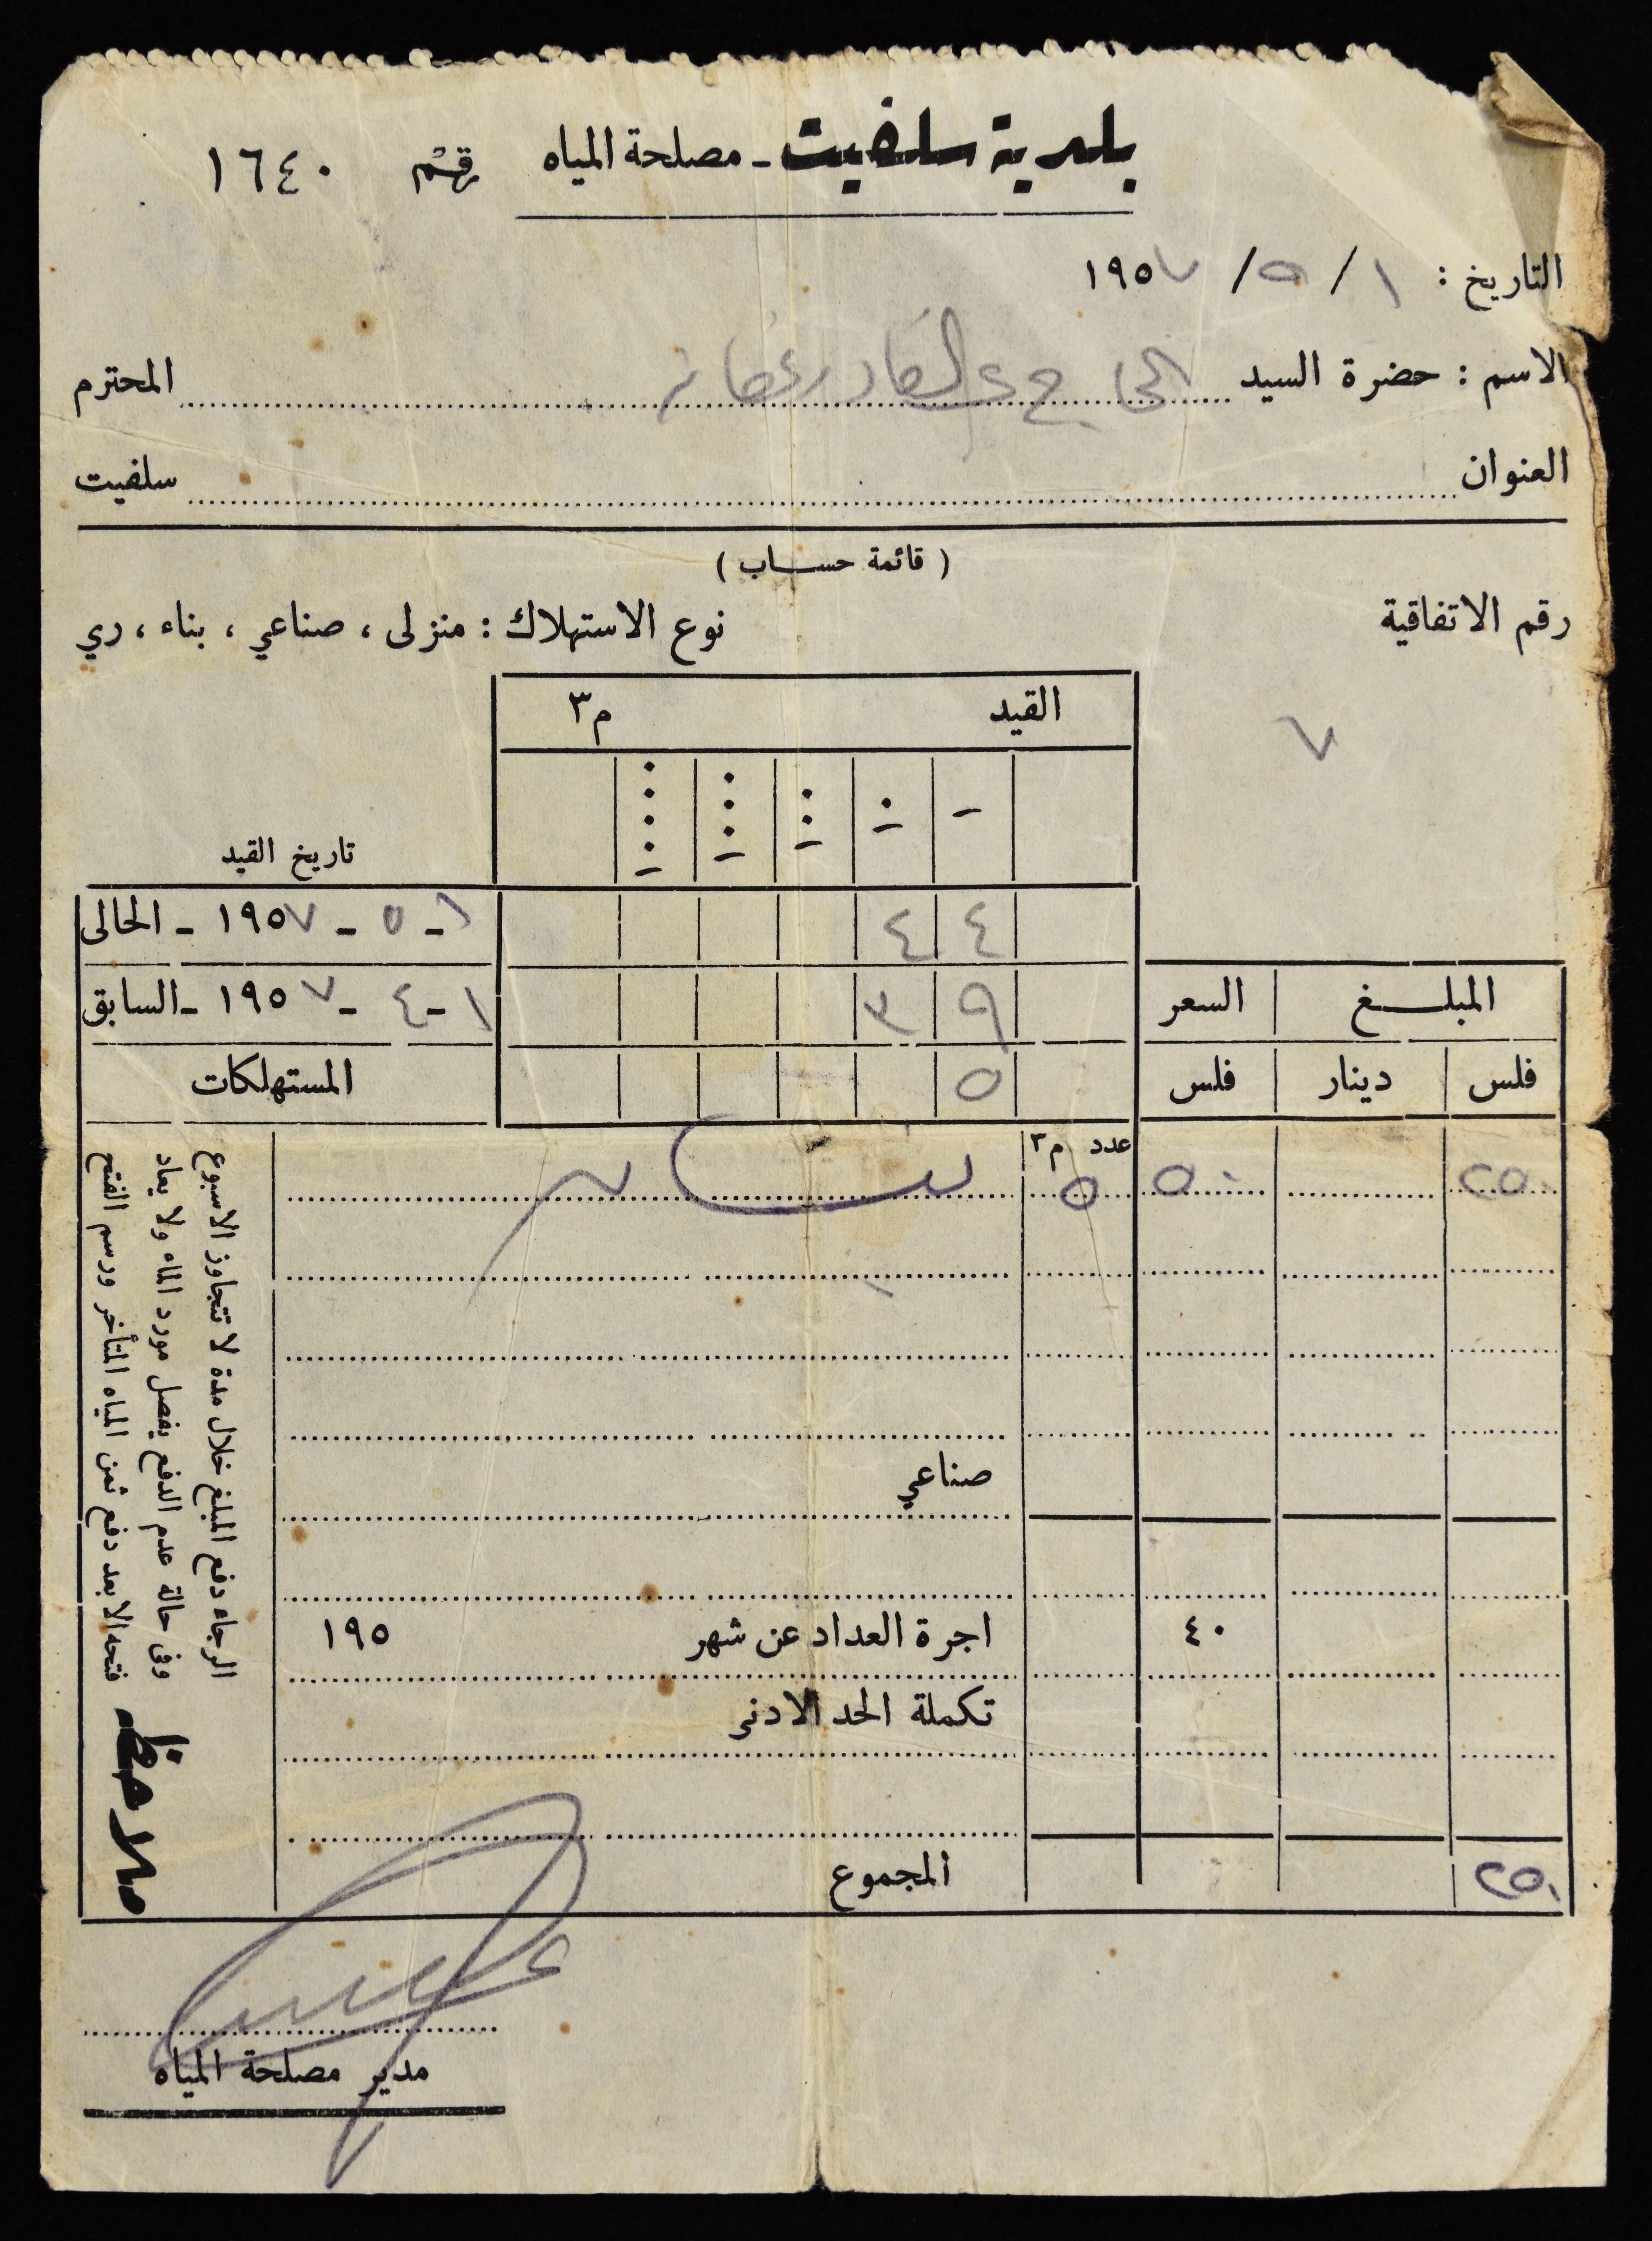 بلدية سلفيت - مصلحة المياه رقم ١٦٤٠
التاريخ : ١ / ٥ / ١٩٥٧
الاسم : حضرة السيد المحترم
العنوان سلفيت
( قائمة حساب )
رقم الاتفاقية نوع الاستهلاك : منزلى ، صناعي ، بناء ، ري
٧
القيد م٣
١ ١٠ ١٠٠ ١٠٠٠ ١٠٠٠٠
تاريخ القيد
٤ ٤ ١ - ٥ - ١٩٥٧ - الحالى
٩ ٣ ١ - ٤ - ١٩٥٧ - السابق
المبلغ السعر
فلس دينار فلس ٥ المستهلكات
عدد م٣
٢٥٠ ٥٠ ٥
صناعي
٤٠ اجرة العداد عن شهر ١٩٥
تكملة الحد الادنى
٢٥٠ المجموع
ملاحظة
الرجاء دفع المبلغ خلال مدة لا تتجاوز الاسبوع
وفى حالة عدم الدفع يفصل مورد الماء ولا يعاد
فتحه الا بعد دفع ثمن المياه المتأخر ورسم الفتح
مدير مصلحة المياه